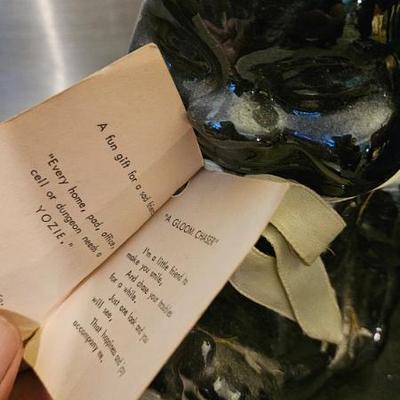 A fun gift for a sad friend
"Every home, pad, office,
cell or dungeon needs a
YOZIE."
"A GLOOM CHASER"
I'm a little friend to
make you smile,
And chase your troubles
for a while,
Just one look and you
will see,
That happiness and joy
accompany me.